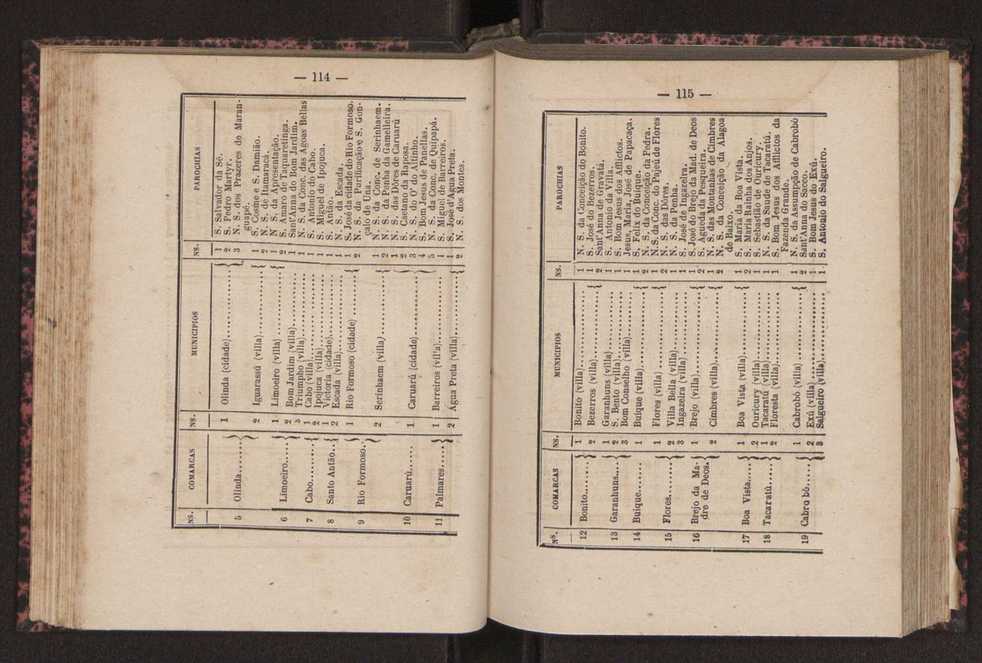 — 114 —
NS. COMARCAS NS. MUNICIPIOS NS. PAROCHIAS
5 Olinda...... 1 Olinda (cidade).......... 1 S. Salvador da Sé.
2 S. Pedro Martyr.
3 N. S. dos Prazeres de Maran-
guape.
2 Iguarassú (villa).......... 1 S. Cosme e S. Damião.
2 N. S. de Itamaracá.
6 Limoeiro.... 1 Limoeiro (villa).......... 1 N. S. da Apresentação.
2 S. Amaro de Taquaretinga.
2 Bom Jardim (villa).......... 1 Sant'Anna do Bom Jardim.
3 Triumpho (villa).......... 1 N. S. da Conc. das Agoas Bellas
7 Cabo........ 1 Cabo (villa).......... 1 S. Antonio do Cabo.
2 Ipojuca (villa).......... 1 S. Miguel de Ipojuca.
8 Santo Antão.. 1 Victoria (cidade).......... 1 S. Antão.
2 Escada (villa).......... 1 N. S. da Escada.
9 Rio Formoso. 1 Rio Formoso (cidade) 1 S. José da cidade do Rio Formoso.
2 N. S. da Purificação e S. Gon-
çalo de Una.
2 Serinhaem (villa).......... 1 N. S. da Conc. de Serinhaem.
2 N. S. da Penha da Gamelleira.
10 Caruarú...... 1 Caruarú (cidade).......... 1 N. S. das Dôres de Caruarú
2 S. Caetano da Raposa.
3 N. S. do O' do Altinho.
4 Bom Jesus de Panellas.
5 N. S. da Conc. de Quipapá.
11 Palmares.... 1 Barreiros (vil'a).......... 1 S. Miguel de Barreiros.
2 Água Preta (villa).......... 1 S. José d'Agua Preta.
2 N. S. dos Montes.
— 115 —
Nˢ. COMARCAS NS. MUNICIPIOS NS. PAROCHIAS
12 Bonito........ 1 Bonito (villa).......... 1 N. S. da Conceição do Bonito.
2 Bezerros (villa).......... 1 S. José de Bezerros.
2 Sant'Anna de Gravatá.
13 Garanhuns.... 1 Garanhuns (villa).......... 1 S. Antonio da Villa.
2 S. Bento (villa).......... 1 S. Bom Jesus dos Afflictos.
3 Bom Conselho (villa).......... 1 Jesus, Maria, José de Papacaça.
14 Buique...... 1 Buique (villa).......... 1 S. Felix do Buique.
2 N. S. da Conceição da Pedra.
15 Flores........ 1 Flores (villa).......... 1 N. S. da Conc. do Pajeú de Flores
2 N. S. das Dôres.
2 Villa Bella (villa).......... 1 N. S. da Penha.
3 Ingazeira (villa).......... 1 S. José de Ingazeira.
16 Brejo da Ma-
dre de Deos. 1 Brejo (villa).......... 1 S. José do Brejo da Mad. de Deos
2 S. Agueda da Pesqueira.
2 Cimbres (villa).......... 1 N. S. das Montanhas de Cimbres
2 N. S. da Conceição da Alagoa
de Baixo.
17 Boa Vista.... 1 Boa Vista (villa).......... 1 S. Maria da Boa Vista.
2 S. Maria Rainha dos Anjos.
2 Ouricury (villa).......... 1 S. Sebastião de Ouricury.
18 Tacaratú..... 1 Tacaratú (villa).......... 1 N. S. da Saude do Tacaratú.
2 Floresta (villa).......... 1 S. Bom Jesus dos Afflictos da
Fazenda Grande.
19 Cabro bó..... 1 Cabrobó (villa).......... 1 N. S. da Assumpção de Cabrobó
2 Sant'Anna do Sacco.
2 Exú (villa).......... 1 S. Bom Jesus do Exú.
3 Salgueiro (villa).......... 1 S. Antonio do Salgueiro.